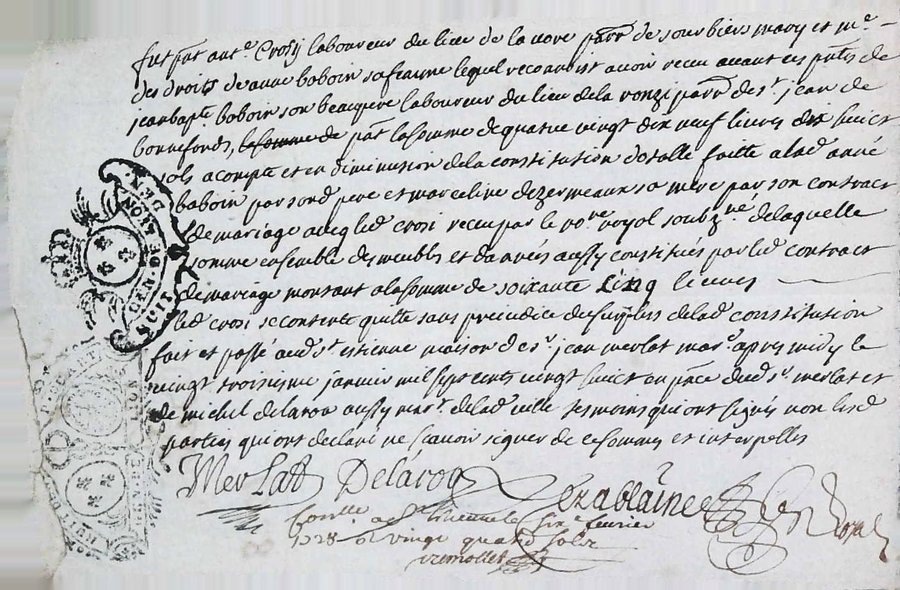 fut pnt antᵉ Crosy laboureur du lieu de la nore parrᵉ de sourbier mary et mᵉ
des droits de anne boboin sa feamme lequel reconnoist avoir receu avant ces pntes de
jean bapte boboin son beaupere laboureur du lieu de la ronzi parrᵉ de sᵗ jean de
bonnefonds, la somme de pnt la somme de quatre vingt dix neuf livres dix huict
sols a compte et en diminusion de la constitution dotalle faitte a lad anne
boboin par sond pere et marceline dezermeaux sa mere par son contract
de mariage avec led crosi receu par le noʳᵉ royal soubzⁿᵉ de laquelle
somme ensemble des meubles et danrées aussy constitués par led contract
de mariage montant a la somme de soixante cinq livres
led crosi se contente quitte sans prejudice du surplus de lad constitution
fait et passé aud sᵗ estienne maison de sʳ jean merlat marᵈ apres midy le
vingt troisieme janvier mil sept cents vingt huict en pnce dud sʳ merlat et
de michel delaroa aussy marᵈ de lad ville tesmoins qui ont signés non lesd
parties qui ont declaré ne scavoir signer de ce sommés et interpellés
Merlatt Delaroa
Conllé a Sᵗ Etienne le six e fevrier
1728 R vingt quatre sols
GEN. DE LYON
HUIT DEN